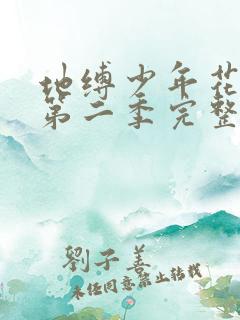 地缚少年花
第二季完整
劉子善
未经同意禁止转载